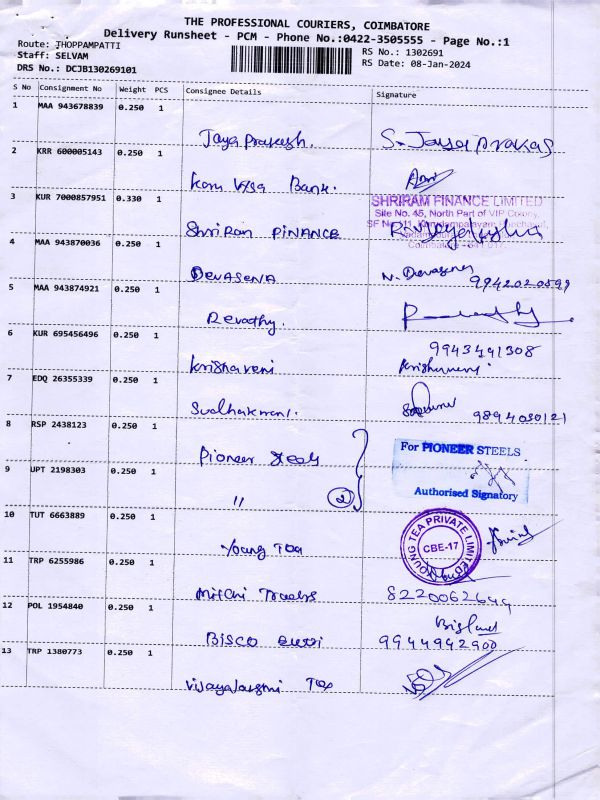 THE PROFESSIONAL COURIERS, COIMBATORE
Delivery Runsheet - PCM - Phone No.:0422-3505555 - Page No.:1
Route: THOPPAMPATTI
Staff: SELVAM
DRS No.: DCJB130269101
RS No.: 1302691
RS Date: 08-Jan-2024
S No Consignment No Weight PCS Consignee Details Signature
1 MAA 943678839 0.250 1
Jaya Prakash. S. Jaya Prakas
2 KRR 600005143 0.250 1
Karu Vysa Bank.
3 KUR 7000857951 0.330 1
SHRIRAM FINANCE LIMITED
Site No. 45, North Part of VIP Colony,
Shriram FINANCE
4 MAA 943870036 0.250 1
DEVASENA N. Devasena
9942020599
5 MAA 943874921 0.250 1
Revathy.
6 KUR 695456496 0.250 1
9943491308
Krishaveni
7 EDQ 26355339 0.250 1
Sudhakmani.
9894030121
8 RSP 2438123 0.250 1
Pioneer Steels
For PIONEER STEELS
9 UPT 2198303 0.250 1
Authorised Signatory
" 2
10 TUT 6663889 0.250 1
YOUNG TEA PRIVATE LIMITED
CBE-17
Young Tea
11 TRP 6255986 0.250 1
Mitchi Traders 8220062644
12 POL 1954840 0.250 1
BISCO
9944942900
13 TRP 1380773 0.250 1
Vijayalaxmi Tex